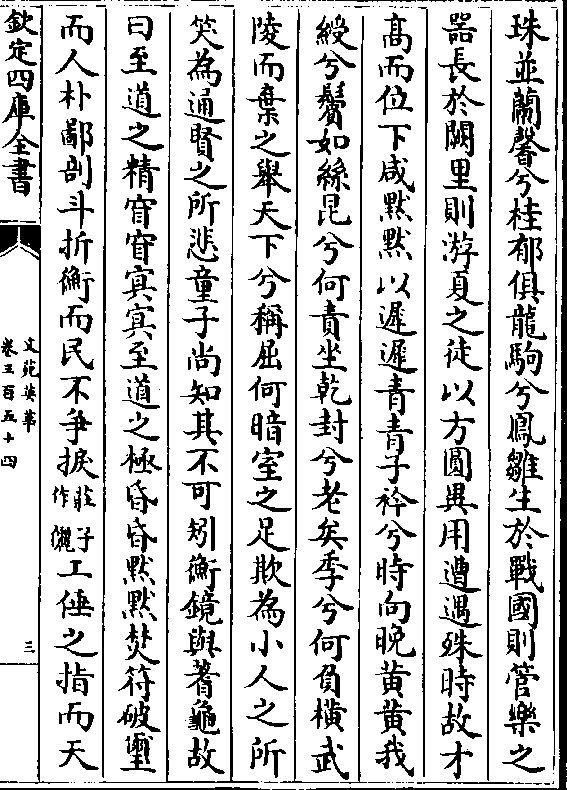 珠並蘭馨兮桂郁俱龍駒兮鳳雛生於戰國則管樂之
器長於闕里則游夏之徒以方圓異用遭遇殊時故才
髙而位下咸黙黙以遲遲青青子衿兮時向晚黄黄我
綬兮鬢如絲昆兮何責坐乾封兮老矣季兮何負横武
陵而棄之舉天下兮稱屈何暗室之足欺為小人之所
笑為通賢之所悲童子尚知其不可矧衡鏡與蓍龜故
曰至道之精窅窅冥冥至道之極昏昏黙黙焚符破璽
而人朴鄙剖斗折衡而民不爭捩莊子作㩵工倕之指而天
欽定四庫全書
文苑英華
卷三百五十四
三